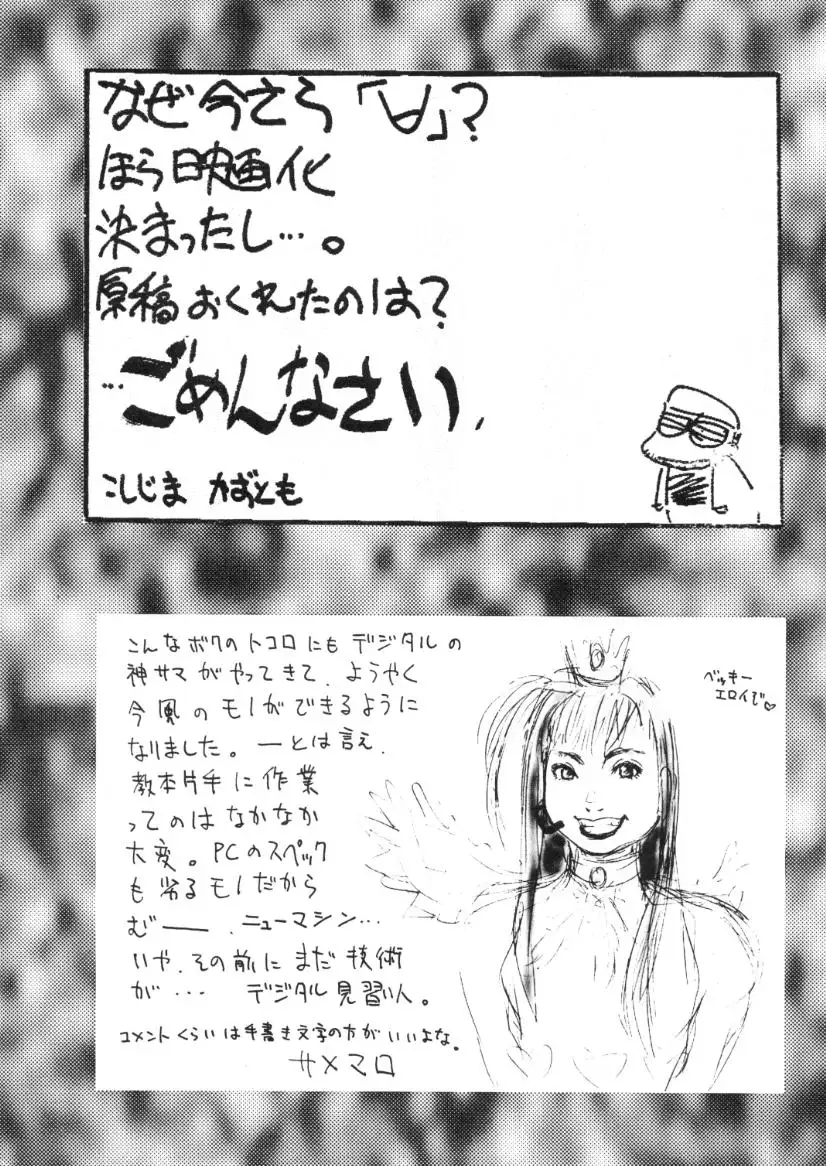 なぜ今さら「∀」?
ほら映画化
決まったし…。
原稿おくれたのは?
…ごめんなさい、
こしじま かずとも
こんなボクのトコロにもデジタルの
神サマがやってきて、ようやく
今風のモノができるように
なりました。ーとは言え、
教本片手に作業
ってのはなかなか
大変。PCのスペック
も劣るモノだから
むーー、ニューマシン…
いや、その前にまだ技術
が… デジタル見習い人。
コメントくらいは手書き文字の方がいいよな。
サメマロ
ベッキー
エロイで♡